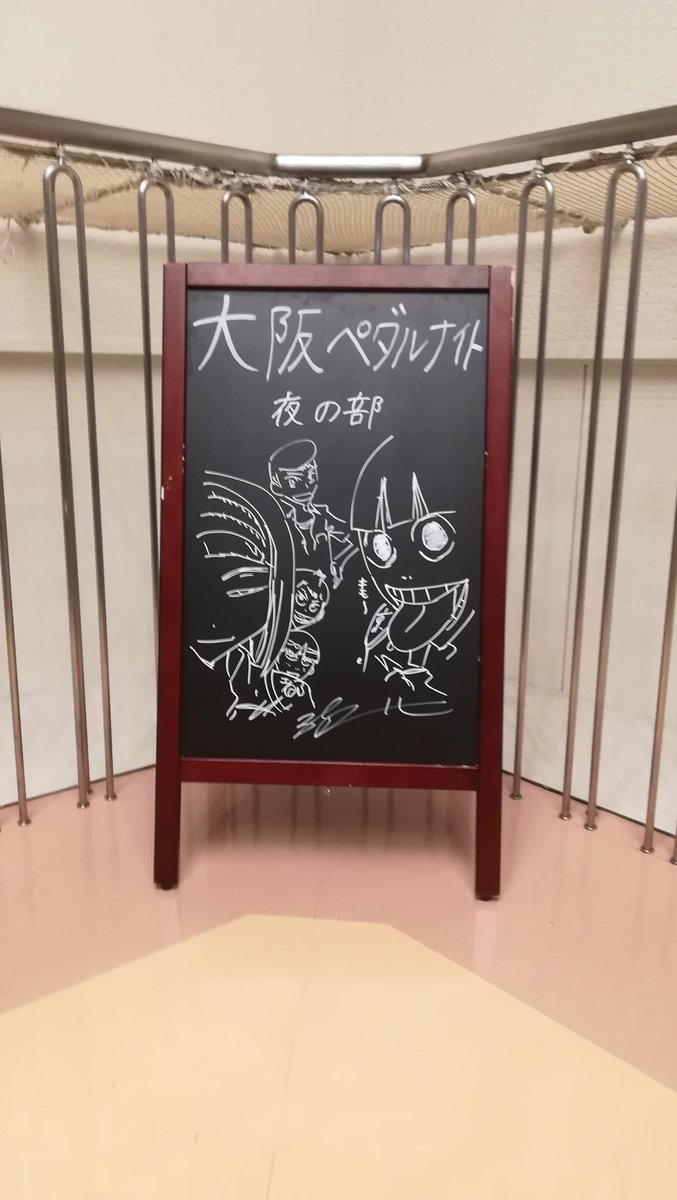 大阪ペダルナイト
夜の部